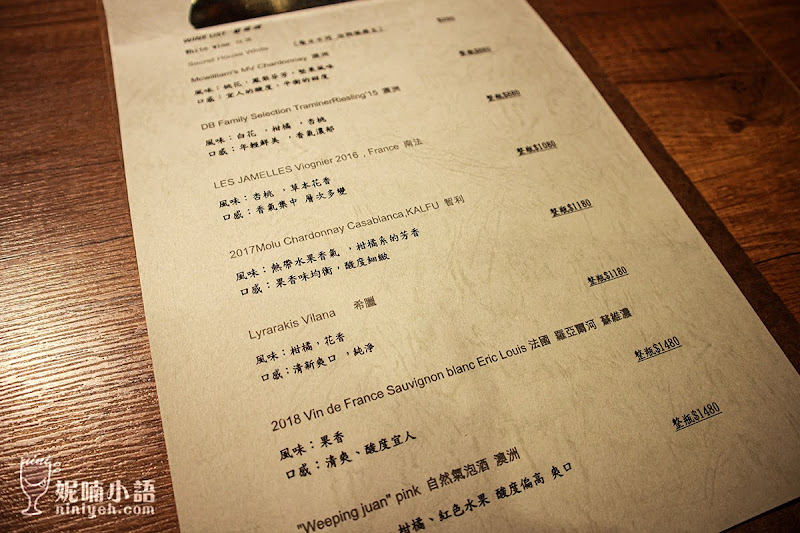 WINE LIST
White wine
Second House White
Mcwilliam's MV Chardonnay 澳洲
風味：桃花，鳳梨芬芳，堅果風味
口感：宜人的酸度，平衡的甜度
整瓶$880
DB Family Selection TraminerRiesling'15 澳洲
風味：白花，柑橘，杏桃
口感：年輕鮮美，香氣濃郁
整瓶$880
LES JAMELLES Viognier 2016，France 南法
風味：杏桃，草本花香
口感：香氣集中 層次多變
整瓶$1080
2017Molu Chardonnay Casablanca,KALFU 智利
風味：熱帶水果香氣，柑橘系的芳香
口感：果香味均衡，酸度細緻
整瓶$1180
Lyrarakis Vilana 希臘
風味：柑橘，花香
口感：清新爽口，純淨
整瓶$1180
2018 Vin de France Sauvignon blanc Eric Louis 法國 羅亞爾河 蘇維濃
風味：果香
口感：清爽、酸度宜人
整瓶$1480
"Weeping juan" pink 自然氣泡酒 澳洲
柑橘、紅色水果 酸度偏高 爽口
整瓶$1480
wine
妮喃小語
niniyeh.com